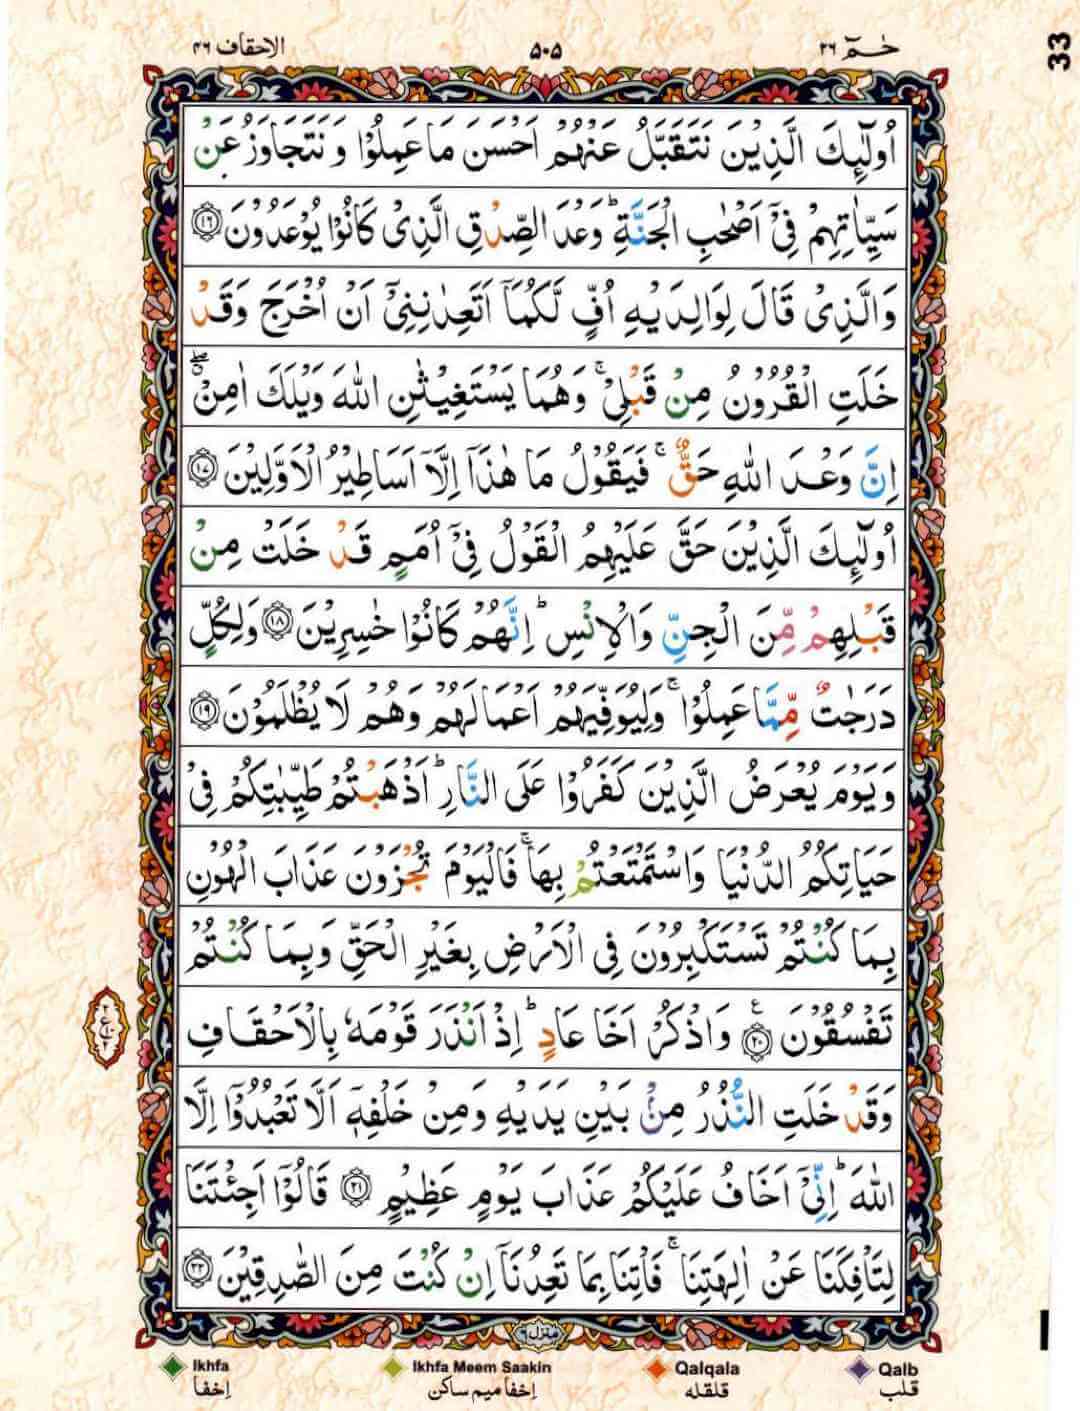 الاحقاف ۴۶ ۵۰۵ حٰمٓ ۲۶
33
اُولٰٓئِكَ الَّذِیْنَ نَتَقَبَّلُ عَنْهُمْ اَحْسَنَ مَا عَمِلُوْا وَ نَتَجَاوَزُ عَنْ
سَیِّاٰتِهِمْ فِیْۤ اَصْحٰبِ الْجَنَّةِ ؕ وَعْدَ الصِّدْقِ الَّذِیْ كَانُوْا یُوْعَدُوْنَ ﴿۱۶﴾
وَالَّذِیْ قَالَ لِوَالِدَیْهِ اُفٍّ لَّكُمَاۤ اَتَعِدٰنِنِیْۤ اَنْ اُخْرَجَ وَقَدْ
خَلَتِ الْقُرُوْنُ مِنْ قَبْلِیْ ۚ وَهُمَا یَسْتَغِیْثٰنِ اللّٰهَ وَیْلَكَ اٰمِنْ ۖ
اِنَّ وَعْدَ اللّٰهِ حَقٌّ ۚ فَیَقُوْلُ مَا هٰذَاۤ اِلَّاۤ اَسَاطِیْرُ الْاَوَّلِیْنَ ﴿۱۷﴾
اُولٰٓئِكَ الَّذِیْنَ حَقَّ عَلَیْهِمُ الْقَوْلُ فِیْۤ اُمَمٍ قَدْ خَلَتْ مِنْ
قَبْلِهِمْ مِّنَ الْجِنِّ وَالْاِنْسِ ؕ اِنَّهُمْ كَانُوْا خٰسِرِیْنَ ﴿۱۸﴾ وَلِكُلٍّ
دَرَجٰتٌ مِّمَّا عَمِلُوْا ۚ وَلِیُوَفِّیَهُمْ اَعْمَالَهُمْ وَهُمْ لَا یُظْلَمُوْنَ ﴿۱۹﴾
وَیَوْمَ یُعْرَضُ الَّذِیْنَ كَفَرُوْا عَلَی النَّارِ ؕ اَذْهَبْتُمْ طَیِّبٰتِكُمْ فِیْ
حَیَاتِكُمُ الدُّنْیَا وَاسْتَمْتَعْتُمْ بِهَا ۚ فَالْیَوْمَ تُجْزَوْنَ عَذَابَ الْهُوْنِ
بِمَا كُنْتُمْ تَسْتَكْبِرُوْنَ فِی الْاَرْضِ بِغَیْرِ الْحَقِّ وَبِمَا كُنْتُمْ
تَفْسُقُوْنَ ﴿۲۰﴾ ع وَاذْكُرْ اَخَا عَادٍ ؕ اِذْ اَنْذَرَ قَوْمَهٗ بِالْاَحْقَافِ
وَقَدْ خَلَتِ النُّذُرُ مِنْۢ بَیْنِ یَدَیْهِ وَمِنْ خَلْفِهٖۤ اَلَّا تَعْبُدُوْۤا اِلَّا
اللّٰهَ ؕ اِنِّیْۤ اَخَافُ عَلَیْكُمْ عَذَابَ یَوْمٍ عَظِیْمٍ ﴿۲۱﴾ قَالُوْۤا اَجِئْتَنَا
لِتَاْفِكَنَا عَنْ اٰلِهَتِنَا ۚ فَاْتِنَا بِمَا تَعِدُنَاۤ اِنْ كُنْتَ مِنَ الصّٰدِقِیْنَ ﴿۲۲﴾
منزل ۶
Ikhfa Ikhfa Meem Saakin Qalqala Qalb
اِخفا اِخفا میم ساکن قلقله قلب